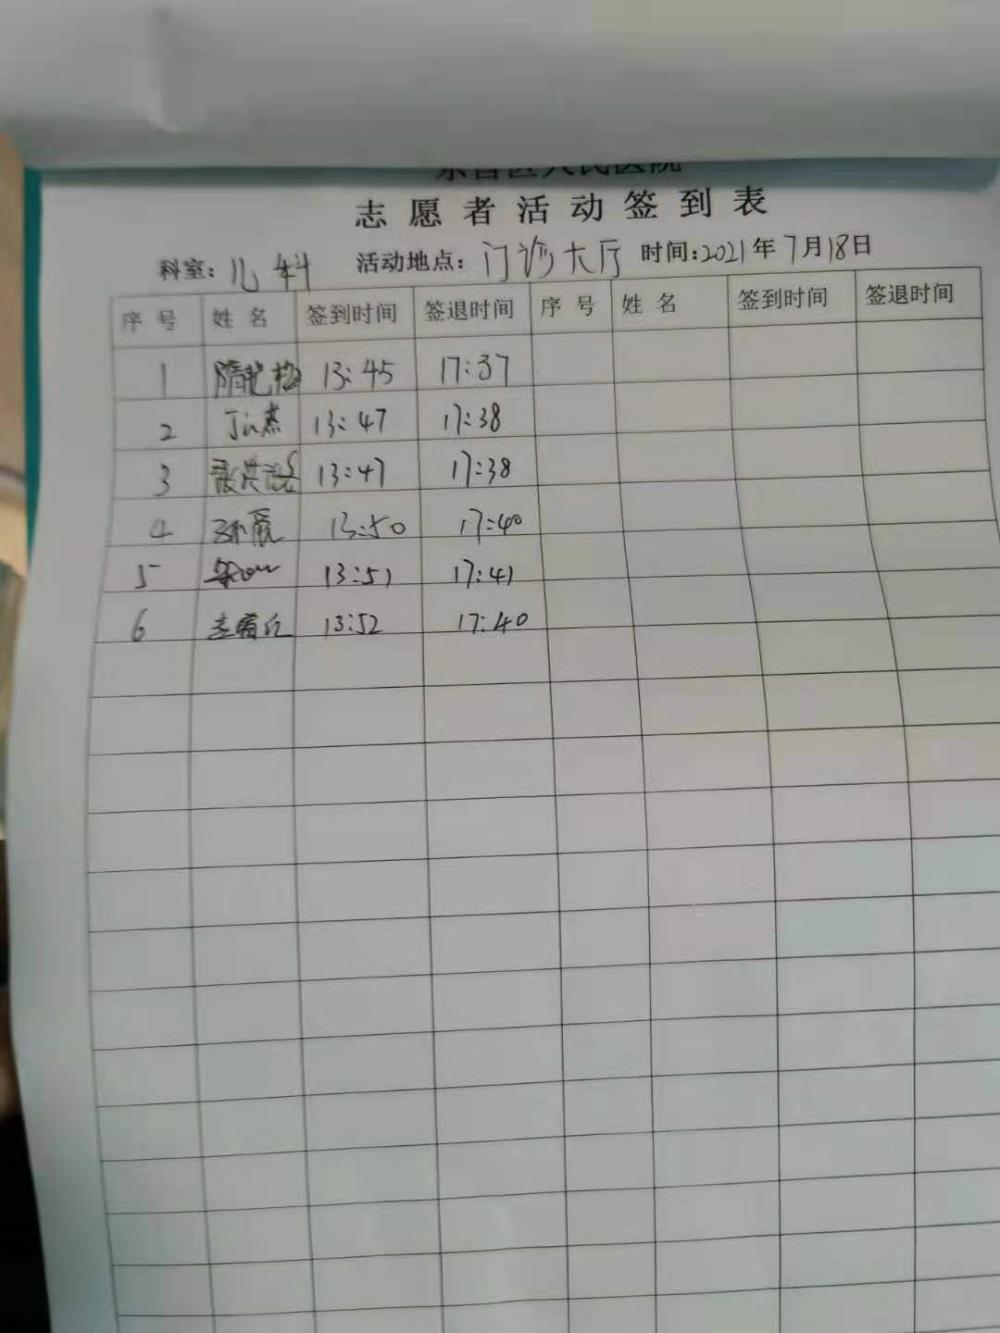 志愿者活动签到表
科室: 儿科 活动地点: 门诊大厅 时间:2021年7月18日
序号 姓名 签到时间 签退时间 序号 姓名 签到时间 签退时间
1 13:45 17:37
2 13:47 17:38
3 13:47 17:38
4 13:50 17:40
5 13:51 17:41
6 13:52 17:40